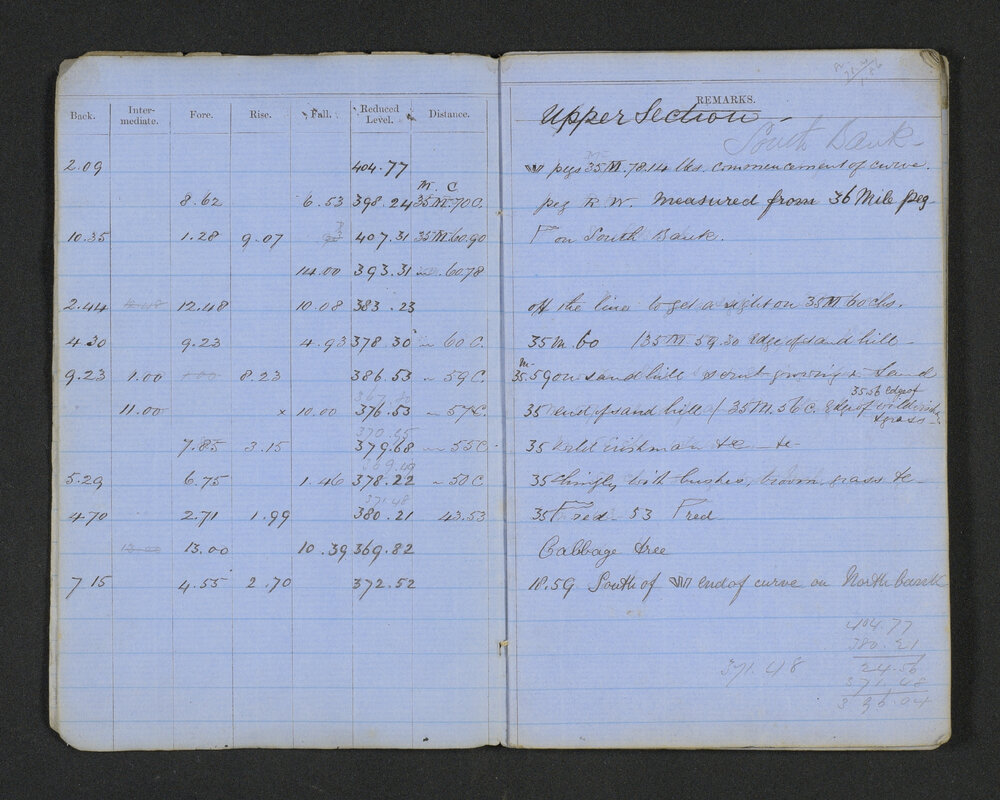 Back. Inter-mediate. Fore. Rise. Fall. Reduced Level. Distance.
2.09 404.77
M. C
8.62 6.53 398.24 35M 70C.
10.35 1.28 9.07 407.31 35M 60.90
14.00 393.31 " 6078
2.44 12.48 10.08 383.23
4.30 9.23 4.93 378.30 " 60 C.
9.23 1.00 8.23 386.53 " 59 C.
11.00 x 10.00 376.53 " 57 C.
7.85 3.15 379.68 " 55 C.
5.29 6.75 1.46 378.22 " 50 C
371.48
4.70 2.71 1.99 380.21 43.53
13.00 13.00 10.39 369.82
7.15 4.55 2.70 372.52
REMARKS.
Upper Section -
South Bank -
pegs 35M. 78.14 lks. commencement of curve.
peg R.W. Measured from 36 Mile peg
on South Bank.
off the line to get a sight on 35M 60 chs.
35 m. 60 / 35M 59.30 edge of sand hill -
35.59 on sand hill scrub growing & sand
35.56 edge of
35 end of sand hill / 35M. 56 C. edge of wild
& grass
35 wild &c &c
35 Shingle, with bushes, broom, grass &c
35 red - 53 red
Cabbage tree
18.59 South of end of curve on North bank
404.77
380.21
24.56
371.48
396.04
371.48